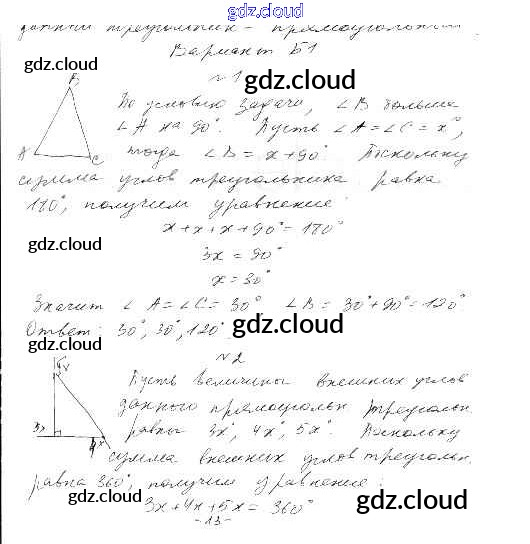 gdz.cloud
данный треугольник - прямоугольный
Вариант Б1
gdz.cloud
№1 gdz.cloud
B
По условию задачи, ∠B больше
∠A на 90°. Пусть ∠A = ∠C = x°,
A C тогда ∠B = x + 90°. Поскольку
сумма углов треугольника равна
180°, получим уравнение:
x + x + x + 90° = 180°
gdz.cloud 3x = 90° gdz.cloud
x = 30°
Значит ∠A = ∠C = 30° ∠B = 30° + 90° = 120°
Ответ: 30°, 30°, 120°. gdz.cloud
№2
Пусть величины внешних углов
данного прямоугольн треугольн.
3x 4x равны 3x°, 4x°, 5x°. Поскольку
gdz.cloud
сумма внешних углов треугольн.
равна 360°, получим уравнение:
gdz.cloud gdz.cloud
3x + 4x + 5x = 360°
-13-